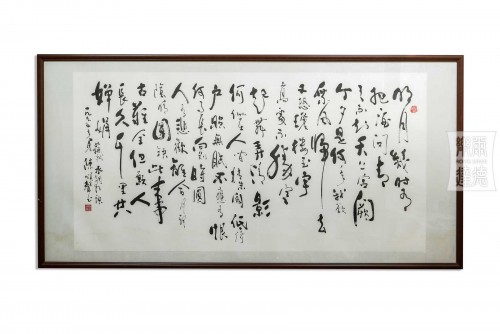 明月幾時有
把酒問青
天不知天上宮闕
今夕是何年我欲
乘風歸去
又恐瓊樓玉宇
高處不勝寒
起舞弄清影
何似在人間轉朱閣低綺
户照無眠不應有恨
何事長向别時圓
人有悲歡離合月有
陰晴圓缺此事
古難全但願人
長久千里共
嬋娟
蘇軾水調歌頭
一九年